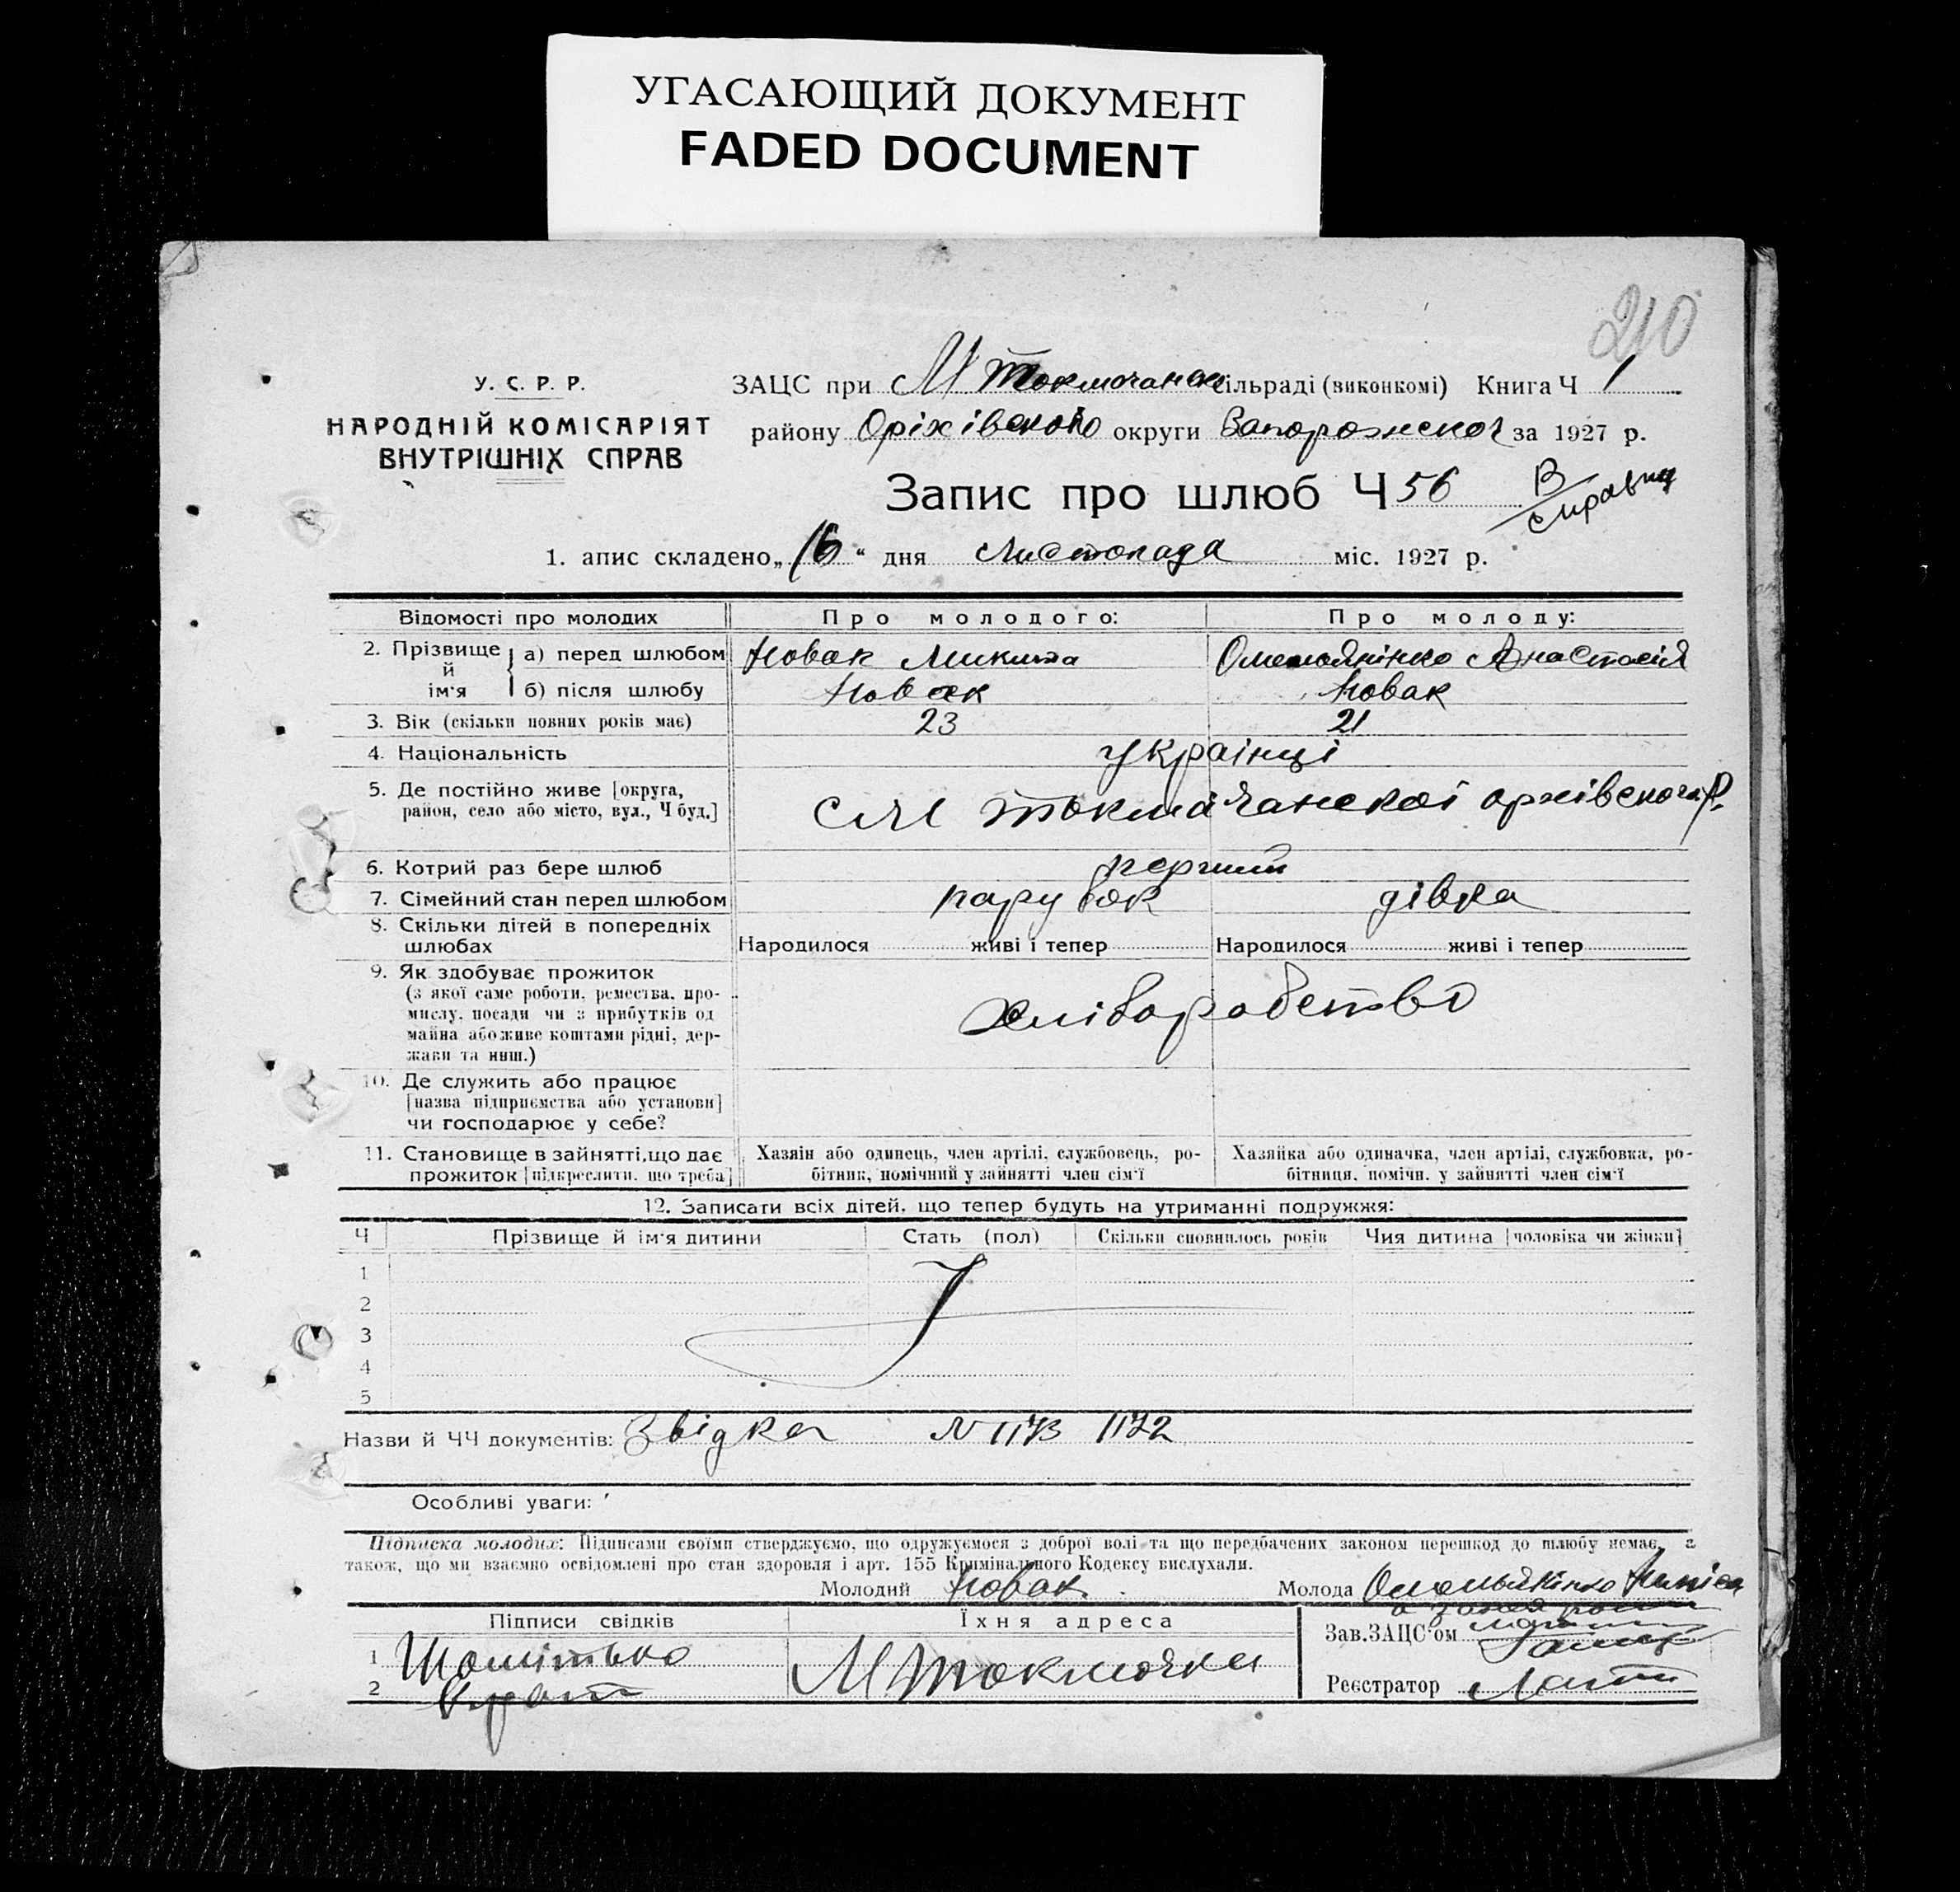 УГАСАЮЩИЙ ДОКУМЕНТ
FADED DOCUMENT
210
У. С. Р. Р.
НАРОДНІЙ КОМІСАРІЯТ
ВНУТРІШНІХ СПРАВ
ЗАЦС при М Токмочанск сільраді (виконкомі) Книга Ч 1
району Оріхівского округи Запорожскої за 1927 р.
Запис про шлюб Ч 56
В справці
1. апис складено „16“ дня Листопада міс. 1927 р.
Відомості про молодих Про молодого: Про молоду:
2. Прізвище й ім'я а) перед шлюбом Новак Микита Омельянінко Анастасія
б) після шлюбу Новак Новак
3. Вік (скільки повних років має) 23 21
4. Національність українці
5. Де постійно живе [округа, район, село або місто, вул., Ч буд.] с М Токмачанскої оріхівского Р.
6. Котрий раз бере шлюб перший
7. Сімейний стан перед шлюбом парубок дівка
8. Скільки дітей в попередніх шлюбах Народилося живі і тепер Народилося живі і тепер
9. Як здобуває прожиток
(з якої саме роботи, ремества, про-
мислу, посади чи з прибутків од
майна або живе коштами рідні, дер-
жави та инш.)
хліборобство
10. Де служить або працює
[назва підприємства або установи]
чи господарює у себе?
11. Становище в зайнятті, що дає Хазяін або одинець, член артілі, службовець, ро- Хазяйка або одиначка, член артілі, службовка, ро-
прожиток [підкреслити, що треба] бітник, помічний у зайнятті член сім'ї бітниця, помічн. у зайнятті член сім'ї
12. Записати всіх дітей, що тепер будуть на утриманні подружжя:
Ч Прізвище й ім'я дитини Стать (пол) Скільки сповнилось років Чия дитина [чоловіка чи жінки]
1
2
3
4
5
Назви й ЧЧ документів: Звідка N 1173 1172
Особливі уваги:
Підписка молодих: Підписами своїми стверджуємо, що одружуємося з доброї волі та що передбачених законом перешкод до шлюбу немає, а
також, що ми взаємно освідомлені про стан здоровля і арт. 155 Кримінального Кодексу вислухали.
Молодий Новак Молода Омельянінко
Підписи свідків Їхня адреса Зав. ЗАЦС'ом
1
2
М Токмочка
Реєстратор